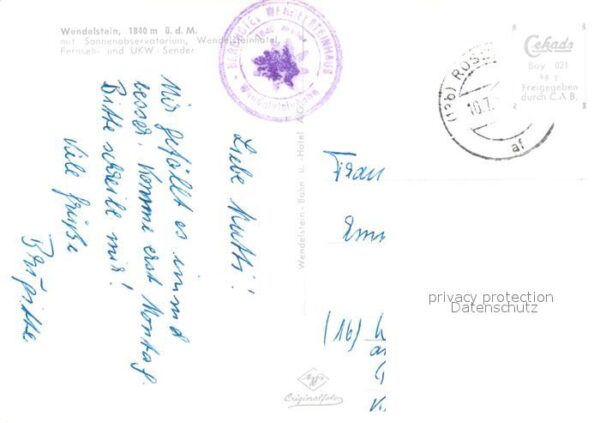 Wendelstein, 1840 m ü. d. M.
mit Sonnenobservatorium, Wendelsteinhotel,
Fernseh- und UKW-Sender
BERGHOTEL WENDELSTEINHAUS
1840 m
Wendelsteinbahn
Cekade
Bay 021
Freigegeben
durch C.A.B.
(13b) ROS
10.7.
af
Liebe Mutti!
Mir gefällt es immer
besser. Komme erst Montag.
Bitte schreibe mir!
Viele Grüße
Brigitte
Wendelstein-Bahn u. -Hotel A.G.
Frau
Emm
(16)
Agfa
Originalfoto
privacy protection
Datenschutz